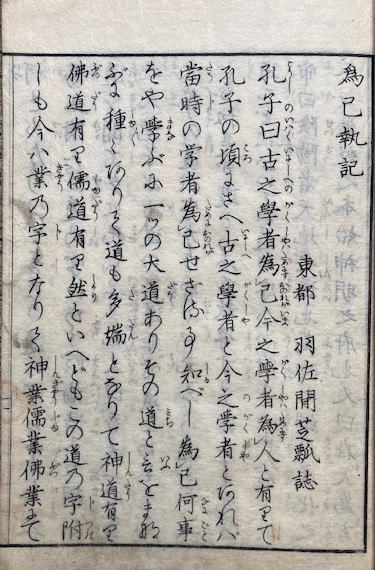 為己執記
東都　羽佐間芝瓢誌
孔子曰古之學者為己今之學者為人と有里て
孔子の頃にさへ古之學者と今之學者とあれバ
當時の学者為己せざる事知べし為己何事
をや学ぶに一ッの大道ありその道と云をまな
ぶに種〻ありて道も多端となりて神道有里
佛道有里儒道有里然といへどもこの道乃字附
しも今ハ業乃字となりて神業儒業佛業まで